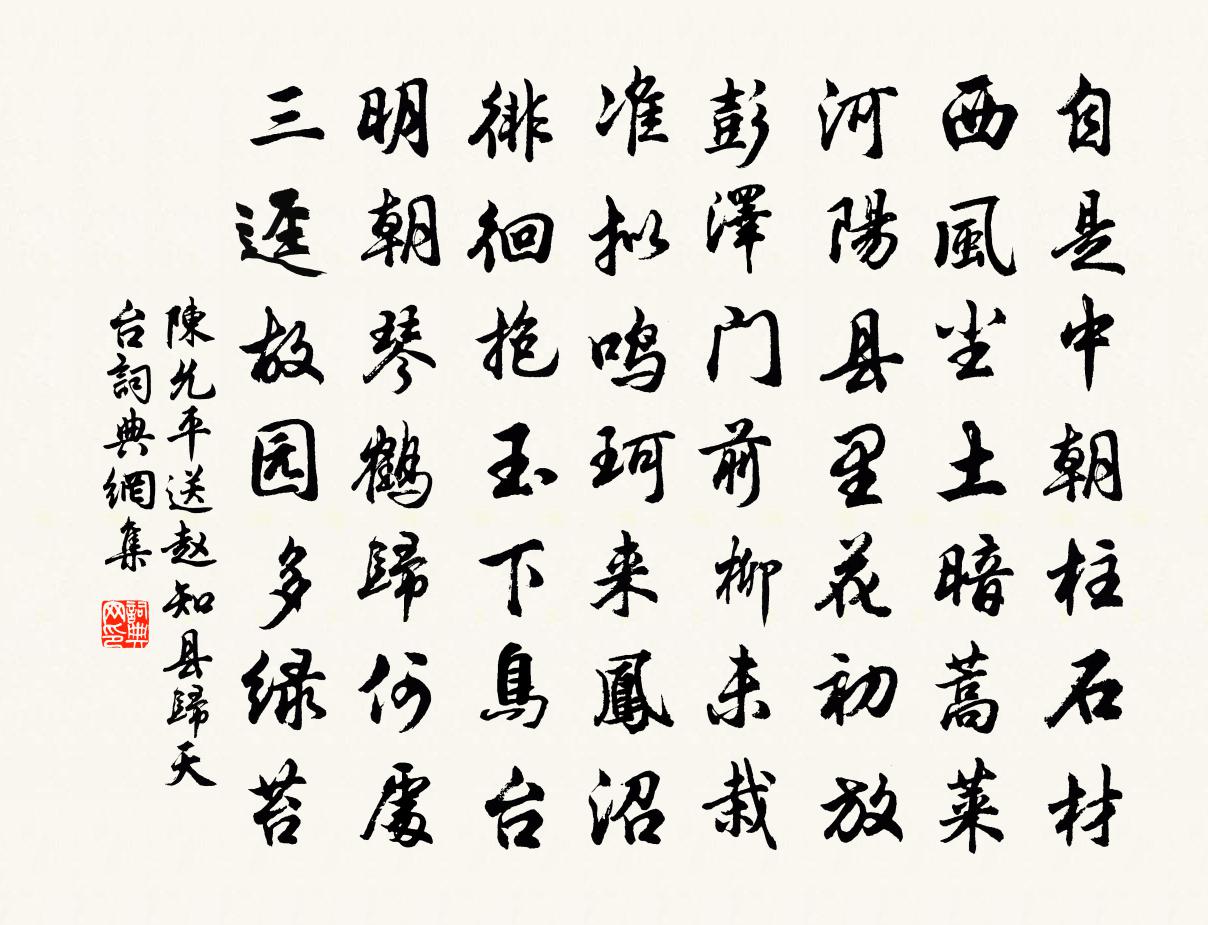 自是中朝柱石材
西風尘土暗蒿莱
河陽县里花初放
彭澤门前柳未栽
准拟鸣珂来鳳沼
徘徊抱玉下鳥台
明朝琴鶴歸何處
三迳故园多绿苔
陳允平送赵知县歸天
台詞典網集
詞典
网印